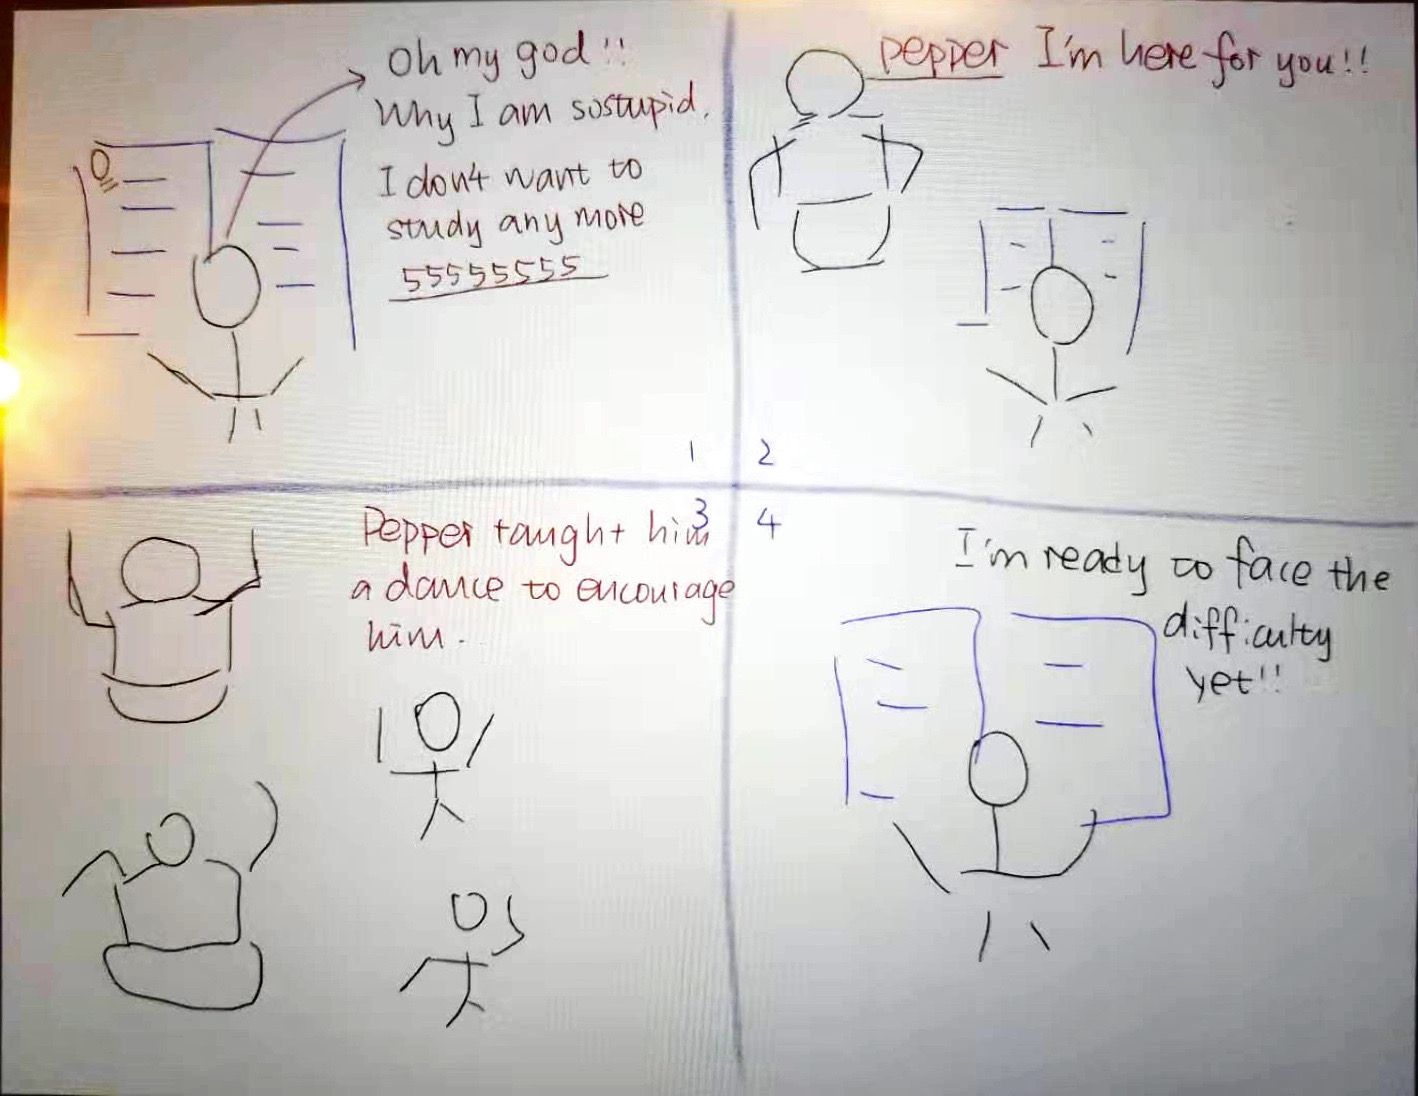 Oh my god!!
Why I am sostupid.
I don4t want to
study any more
55555555
1
pepper I'm here for you!!
2
3
Pepper taught him
a dance to encourage
him.
4
I'm ready to face the
difficulty
yet!!